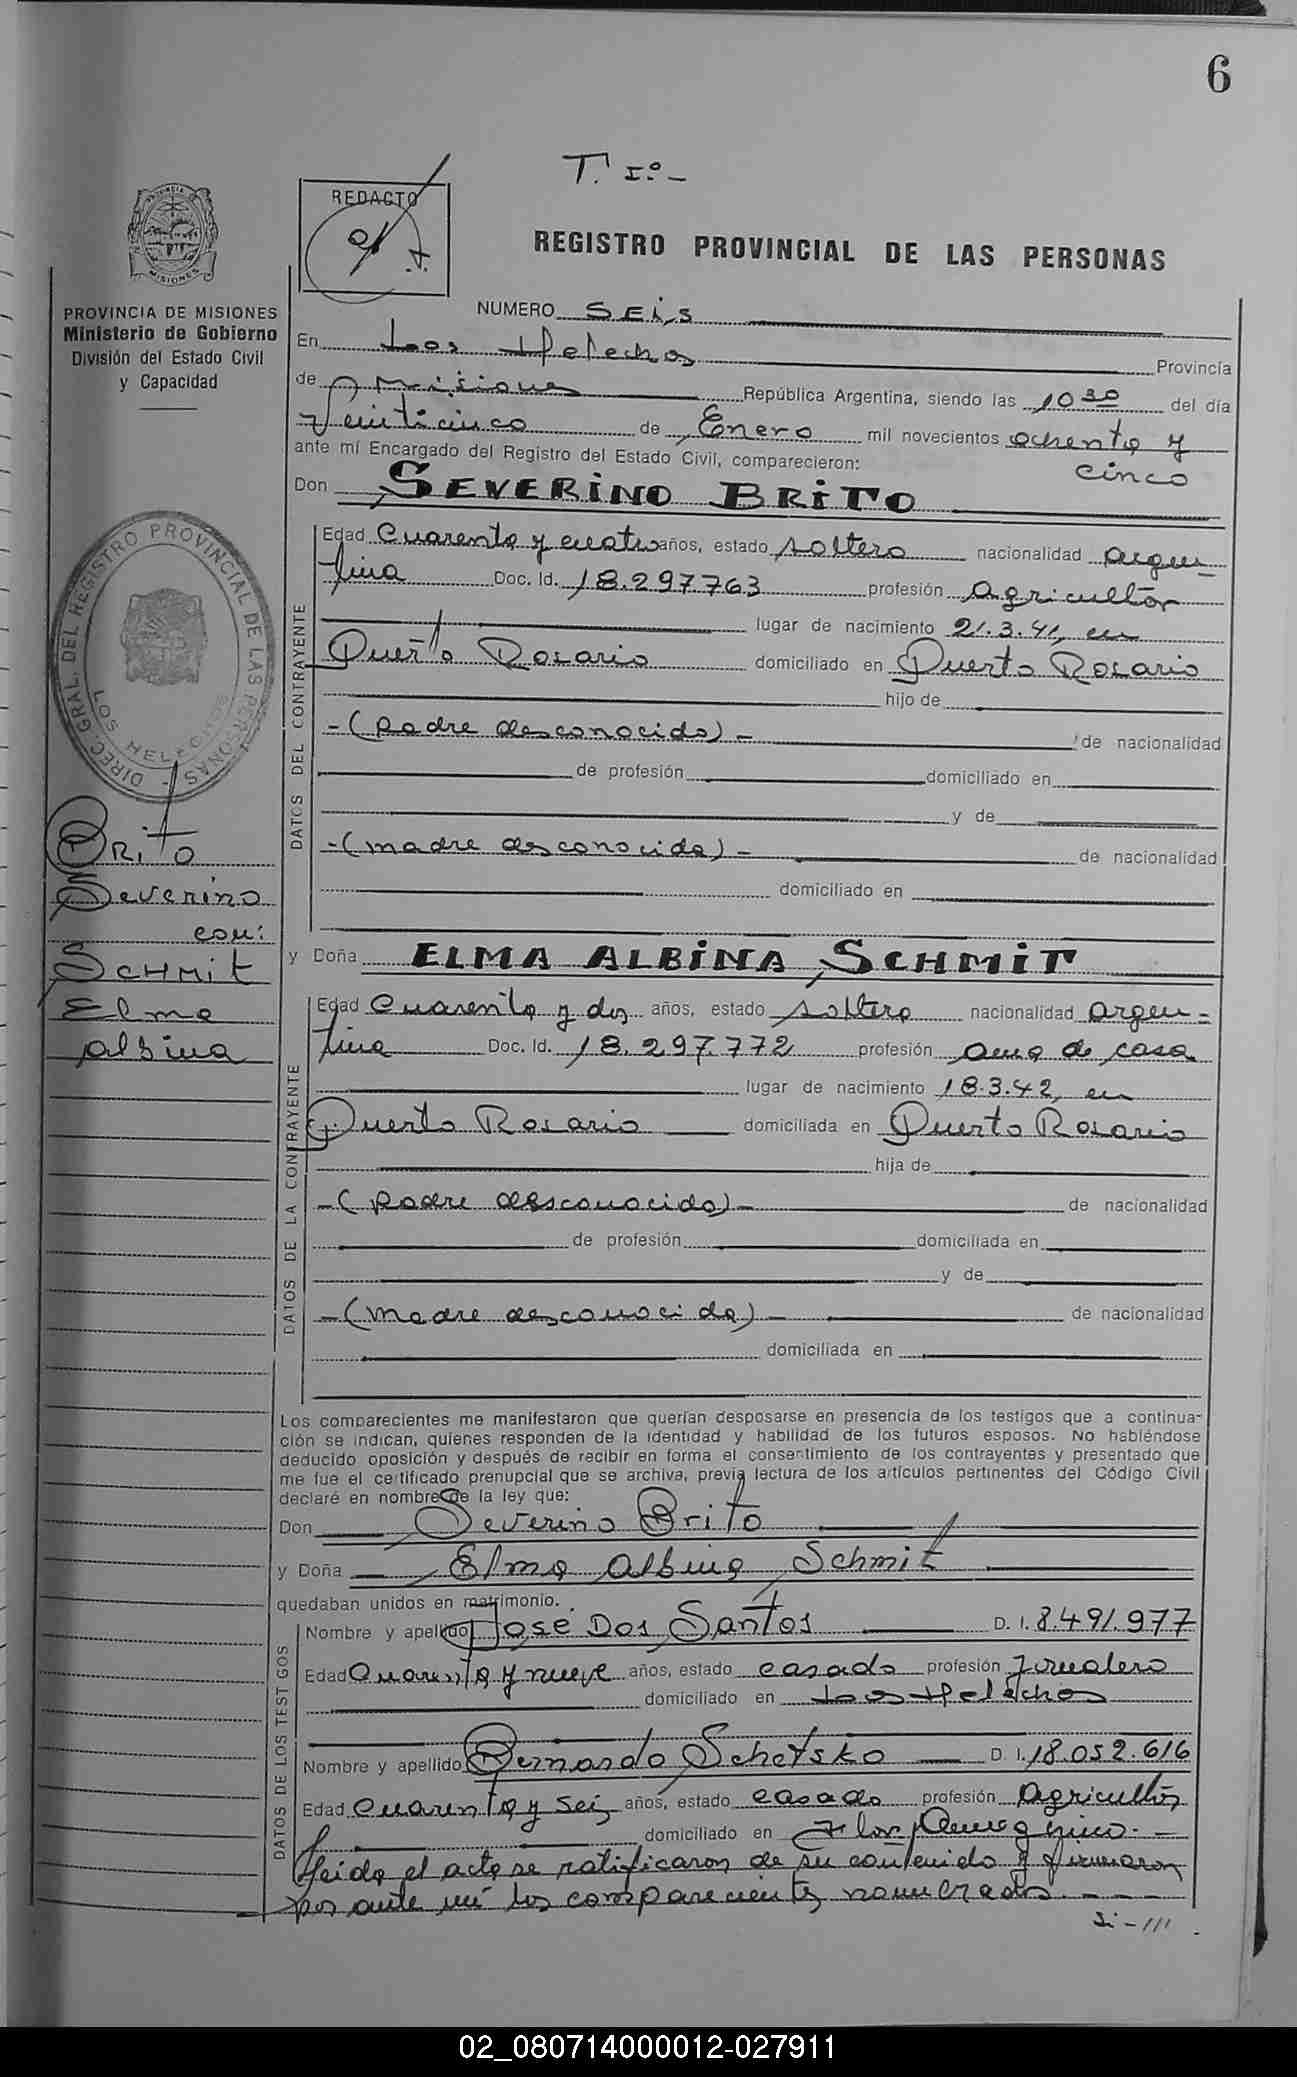 6
T. Iº.-
REDACTO
REGISTRO PROVINCIAL DE LAS PERSONAS
PROVINCIA DE MISIONES
Ministerio de Gobierno
División del Estado Civil
y Capacidad
NUMERO SEIS
En Los Helechos Provincia
de Misiones República Argentina, siendo las 10 30 del día
Veinticinco de Enero mil novecientos ochenta y
cinco
ante mí Encargado del Registro del Estado Civil, comparecieron:
Don SEVERINO BRITO
DATOS DEL CONTRAYENTE
Edad Cuarenta y cuatro años, estado soltero nacionalidad argen-
tina Doc. Id. 18.297.763 profesión Agricultor
lugar de nacimiento 21.3.41, en
Puerto Rosario domiciliado en Puerto Rosario
hijo de
-(padre desconocido)- de nacionalidad
de profesión domiciliado en
y de
-(madre desconocida)- de nacionalidad
domiciliado en
DIREC. GRAL. DEL REGISTRO PROVINCIAL DE LAS PERSONAS -
LOS HELECHOS
BRITO
Severino
con:
SCHMIT
Elma
Albina
y Doña ELMA ALBINA SCHMIT
DATOS DE LA CONTRAYENTE
Edad Cuarenta y dos años, estado soltera nacionalidad argen-
tina Doc. Id. 18.297.772 profesión ama de casa
lugar de nacimiento 18.3.42, en
Puerto Rosario domiciliada en Puerto Rosario
hija de
-(padre desconocido)- de nacionalidad
de profesión domiciliada en
y de
-(madre desconocida)- de nacionalidad
domiciliada en
Los comparecientes me manifestaron que querían desposarse en presencia de los testigos que a continua-
ción se indican, quienes responden de la identidad y habilidad de los futuros esposos. No habiéndose
deducido oposición y después de recibir en forma el consentimiento de los contrayentes y presentado que
me fue el certificado prenupcial que se archiva, previa lectura de los artículos pertinentes del Código Civil
declaré en nombre de la ley que:
Don Severino Brito
y Doña Elma Albina Schmit
quedaban unidos en matrimonio.
DATOS DE LOS TESTIGOS
Nombre y apellido Jose Dos Santos D. I. 8.491.977
Edad Cuarenta y nueve años, estado casado profesión Jornalero
domiciliado en Los Helechos
Nombre y apellido Bernardo Schetsko D. I. 18.052.616
Edad Cuarenta y seis años, estado casado profesión Agricultor
domiciliado en
Leida el acta se ratificaron de su contenido y firmaron
por ante mí los comparecientes nomencrados.
02_080714000012-027911